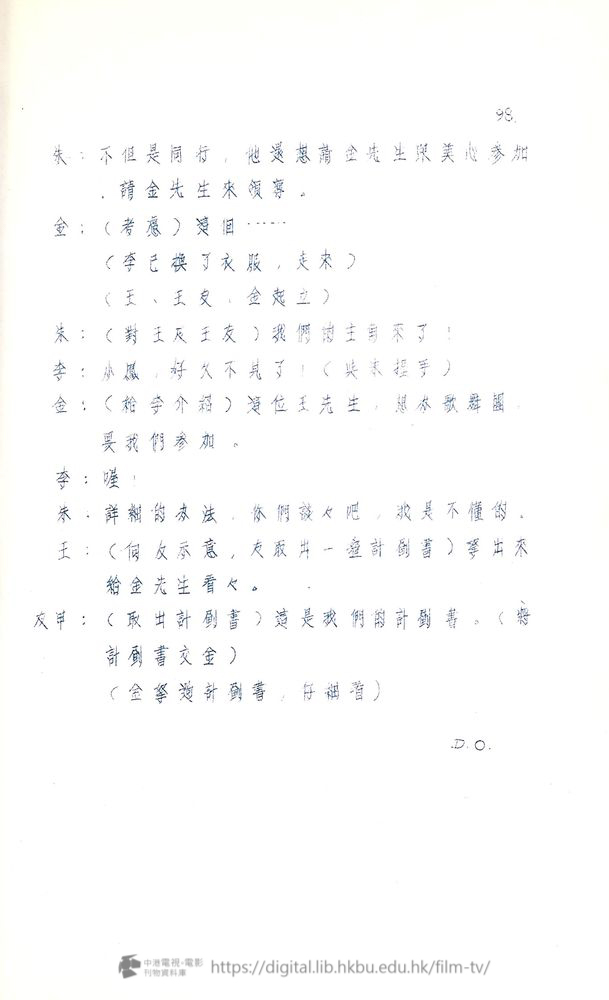 98.
朱：不但是同行，他還想請金先生跟美心參加
，請金先生來領導。
金：（考慮）這個……
（李已換了衣服，走來）
（王、王友、金起立）
朱：（對王及王友）我們的主角來了！
李：小鳳，好久不見了！（與朱握手）
金：（給李介紹）這位王先生，想办歌舞團，
要我們參加。
李：喔！
朱：詳細的办法，你們談々吧，我是不懂的。
王：（向友示意，友取出一疊計劃書）拏出來
給金先生看々。
友甲：（取出計劃書）這是我們的計劃書。（將
計劃書交金）
（金拏過計劃書，仔細看）
D.O.
中港電視・電影
刊物資料庫
https://digital.lib.hkbu.edu.hk/film-tv/